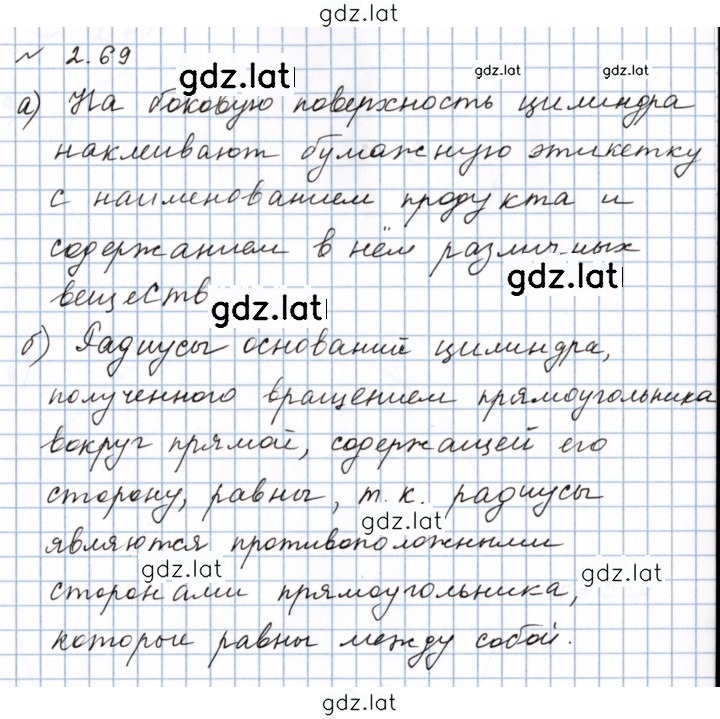 gdz.lat
№ 2.69
gdz.lat gdz.lat gdz.lat
а) На боковую поверхность цилиндра
наклеивают бумажную этикетку
с наименованием продукта и
содержанием в нём различных
gdz.lat
веществ
gdz.lat
б) Радиусы оснований цилиндра,
полученного вращением прямоугольника
вокруг прямой, содержащей его
сторону, равны, т.к. радиусы
gdz.lat
являются противоположными
gdz.lat gdz.lat
сторонами прямоугольника,
которые равны между собой.
gdz.lat